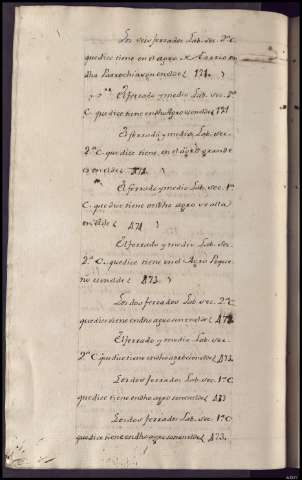 Los seis ferrados Lab. sec. 2ª C.
que dice tiene en el agro
dha Parrochia son en el de 171.
El ferrado y medio Lab. sec. 2ª
C. que dice tiene en dho Agro es en el de 171
El ferrado y medio Lab. sec.
2ª C. que dice tiene, en el agro grande
es en el de 172.
El ferrado y medio Lab. sec. 1ª
C. que dice tiene en dho agro
en el de 172
El ferrado y medio Lab. sec.
2ª C. que dice tiene en el Agro Peque
no es en el de 173.
Los dos ferrados Lab. sec. 2ª C
que dice tiene en dho agro son en el de 173
El ferrado y medio Lab. sec.
2ª C que dice tiene en dho agro es en el de 173.
Los dos ferrados Lab. sec. 1ª C.
que dice tiene en dho agro son en el de 173
Los dos ferrados Lab. sec. 1ª C
que dice tiene en dho agro son en el de 173.